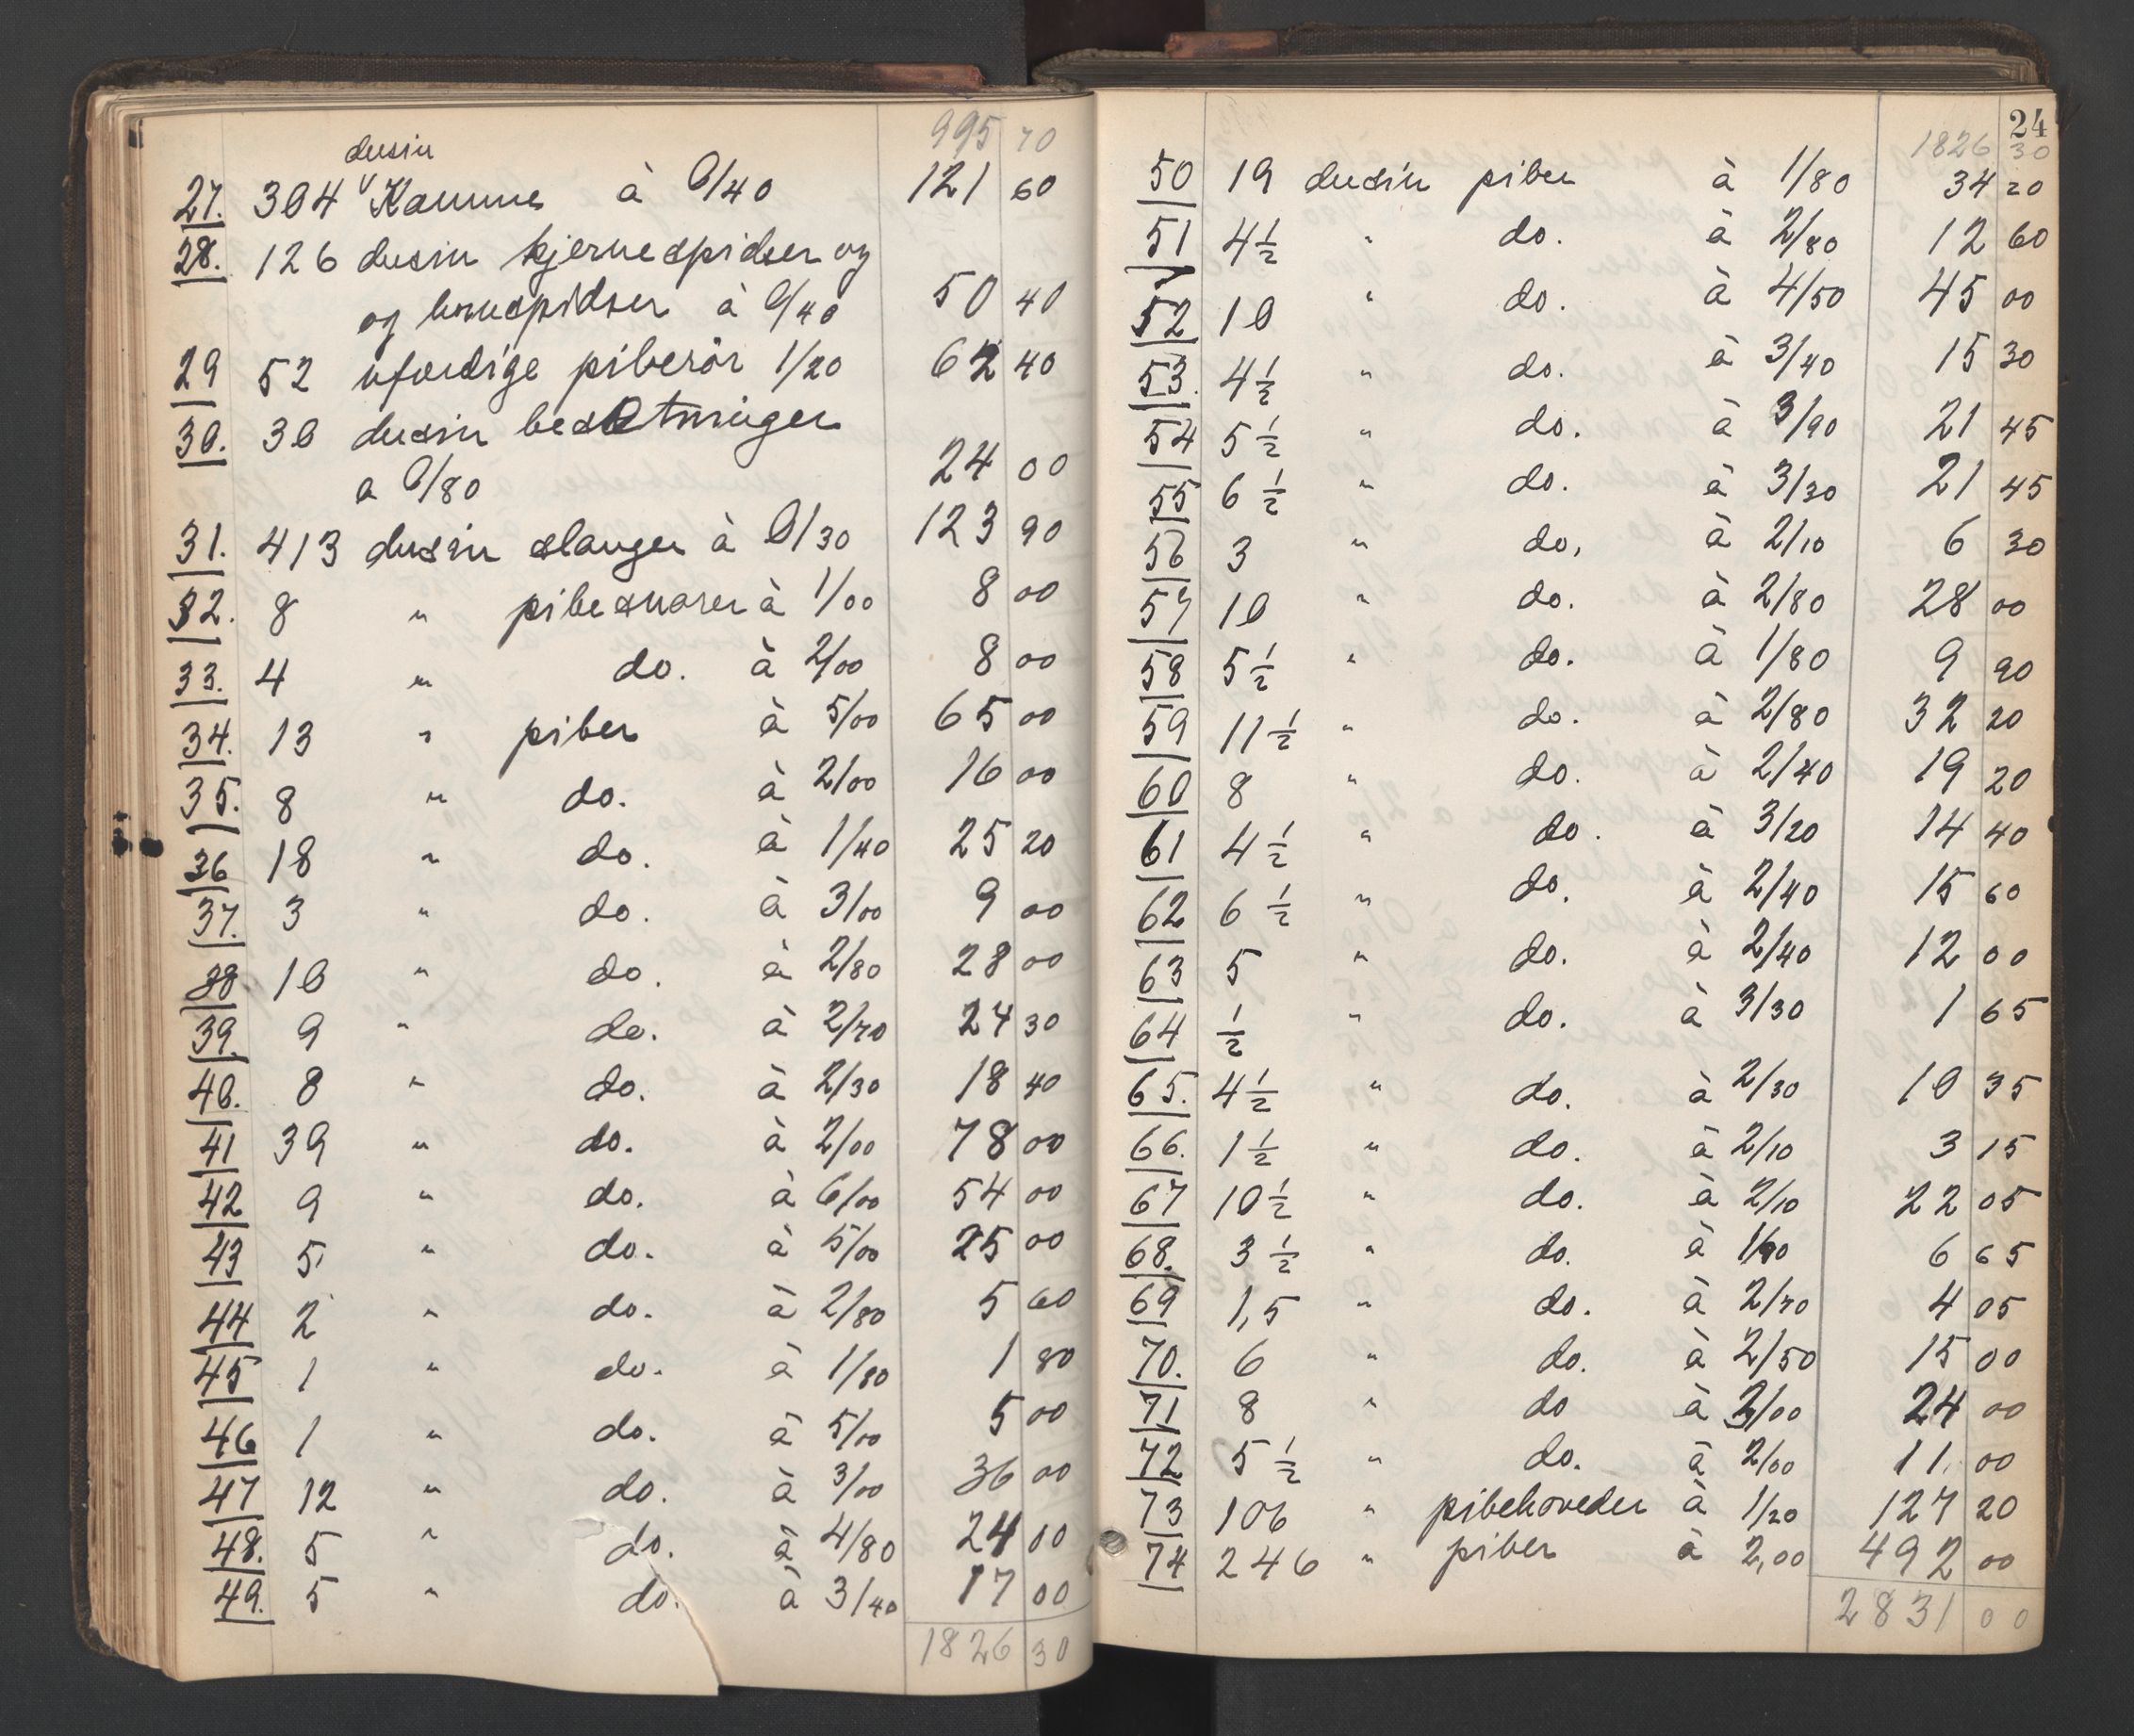 995 70
dusin
27. 304 Kamme à 0/40 121 60
28. 126 dusin kjernespidser og
og hornspidser à 0/40 50 40
29 52 ufærdige piberör 1/20 62 40
30. 30 dusin besetninger
a 0/80 24 00
31. 413 dusin slanger à 0/30 123 90
32. 8 " pibesnorer à 1/00 8 00
33. 4 " do. à 2/00 8 00
34. 13 " piber à 5/00 65 00
35. 8 " do. à 2/00 16 00
36 18 " do. à 1/40 25 20
37. 3 " do. à 3/00 9 00
38 10 " do. à 2/80 28 00
39. 9 " do. à 2/70 24 30
40. 8 " do. à 2/30 18 40
41 39 " do. à 2/00 78 00
42 9 " do. à 6/00 54 00
43 5 " do. à 5/00 25 00
44 2 " do. à 2/80 5 60
45 1 " do. à 1/80 1 80
46 1 " do. à 5/00 5 00
47 12 " do. à 3/00 36 00
48. 5 " do. à 4/80 24 00
49. 5 " do. à 3/40 17 00
1826 30
24
1826 30
50 19 dusin piber à 1/80 34 20
51 4 1/2 " do. à 2/80 12 60
52 10 " do. à 4/50 45 00
53. 4 1/2 " do. à 3/40 15 30
54 5 1/2 " do. à 3/90 21 45
55 6 1/2 " do. à 3/30 21 45
56 3 " do, à 2/10 6 30
57 10 " do. à 2/80 28 00
58 5 1/2 " do. à 1/80 9 90
59 11 1/2 " do. à 2/80 32 20
60 8 " do. à 2/40 19 20
61 4 1/2 " do. à 3/20 14 40
62 6 1/2 " do. à 2/40 15 60
63 5 " do. à 2/40 12 00
64 1/2 " do. à 3/30 1 65
65. 4 1/2 " do. à 2/30 10 35
66. 1 1/2 " do. à 2/10 3 15
67 10 1/2 " do. à 2/10 22 05
68. 3 1/2 " do. à 1/90 6 65
69 1,5 " do. à 2/70 4 05
70. 6 " do. à 2/50 15 00
71 8 " do à 3/00 24 00
72 5 1/2 " do. à 2/00 11 00
73 106 " pibehoveder à 1/20 127 20
74 246 " piber à 2,00 492 00
2831 00